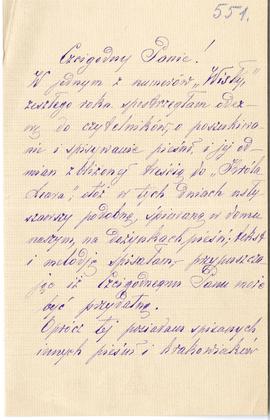 551.
Czcigodny Panie!
W jednym z numerów „Wisły”,
zeszłego roku spostrzegłam odez-
wę do czytelników, o poszukiwa-
nie i spisywanie pieśni, i jej od-
mian zbliżonej treścią do „Króla
otóż w tych dniach usły-
szawszy podobną, śpiewaną w domu
naszym, na dożynkach pieśń, tekst
i melodję spisałam, przypuszcza-
jąc iż Czcigodnemu Panu może
być przydatną.
Oprócz tej posiadam spisanych
innych pieśni i krakowiaków